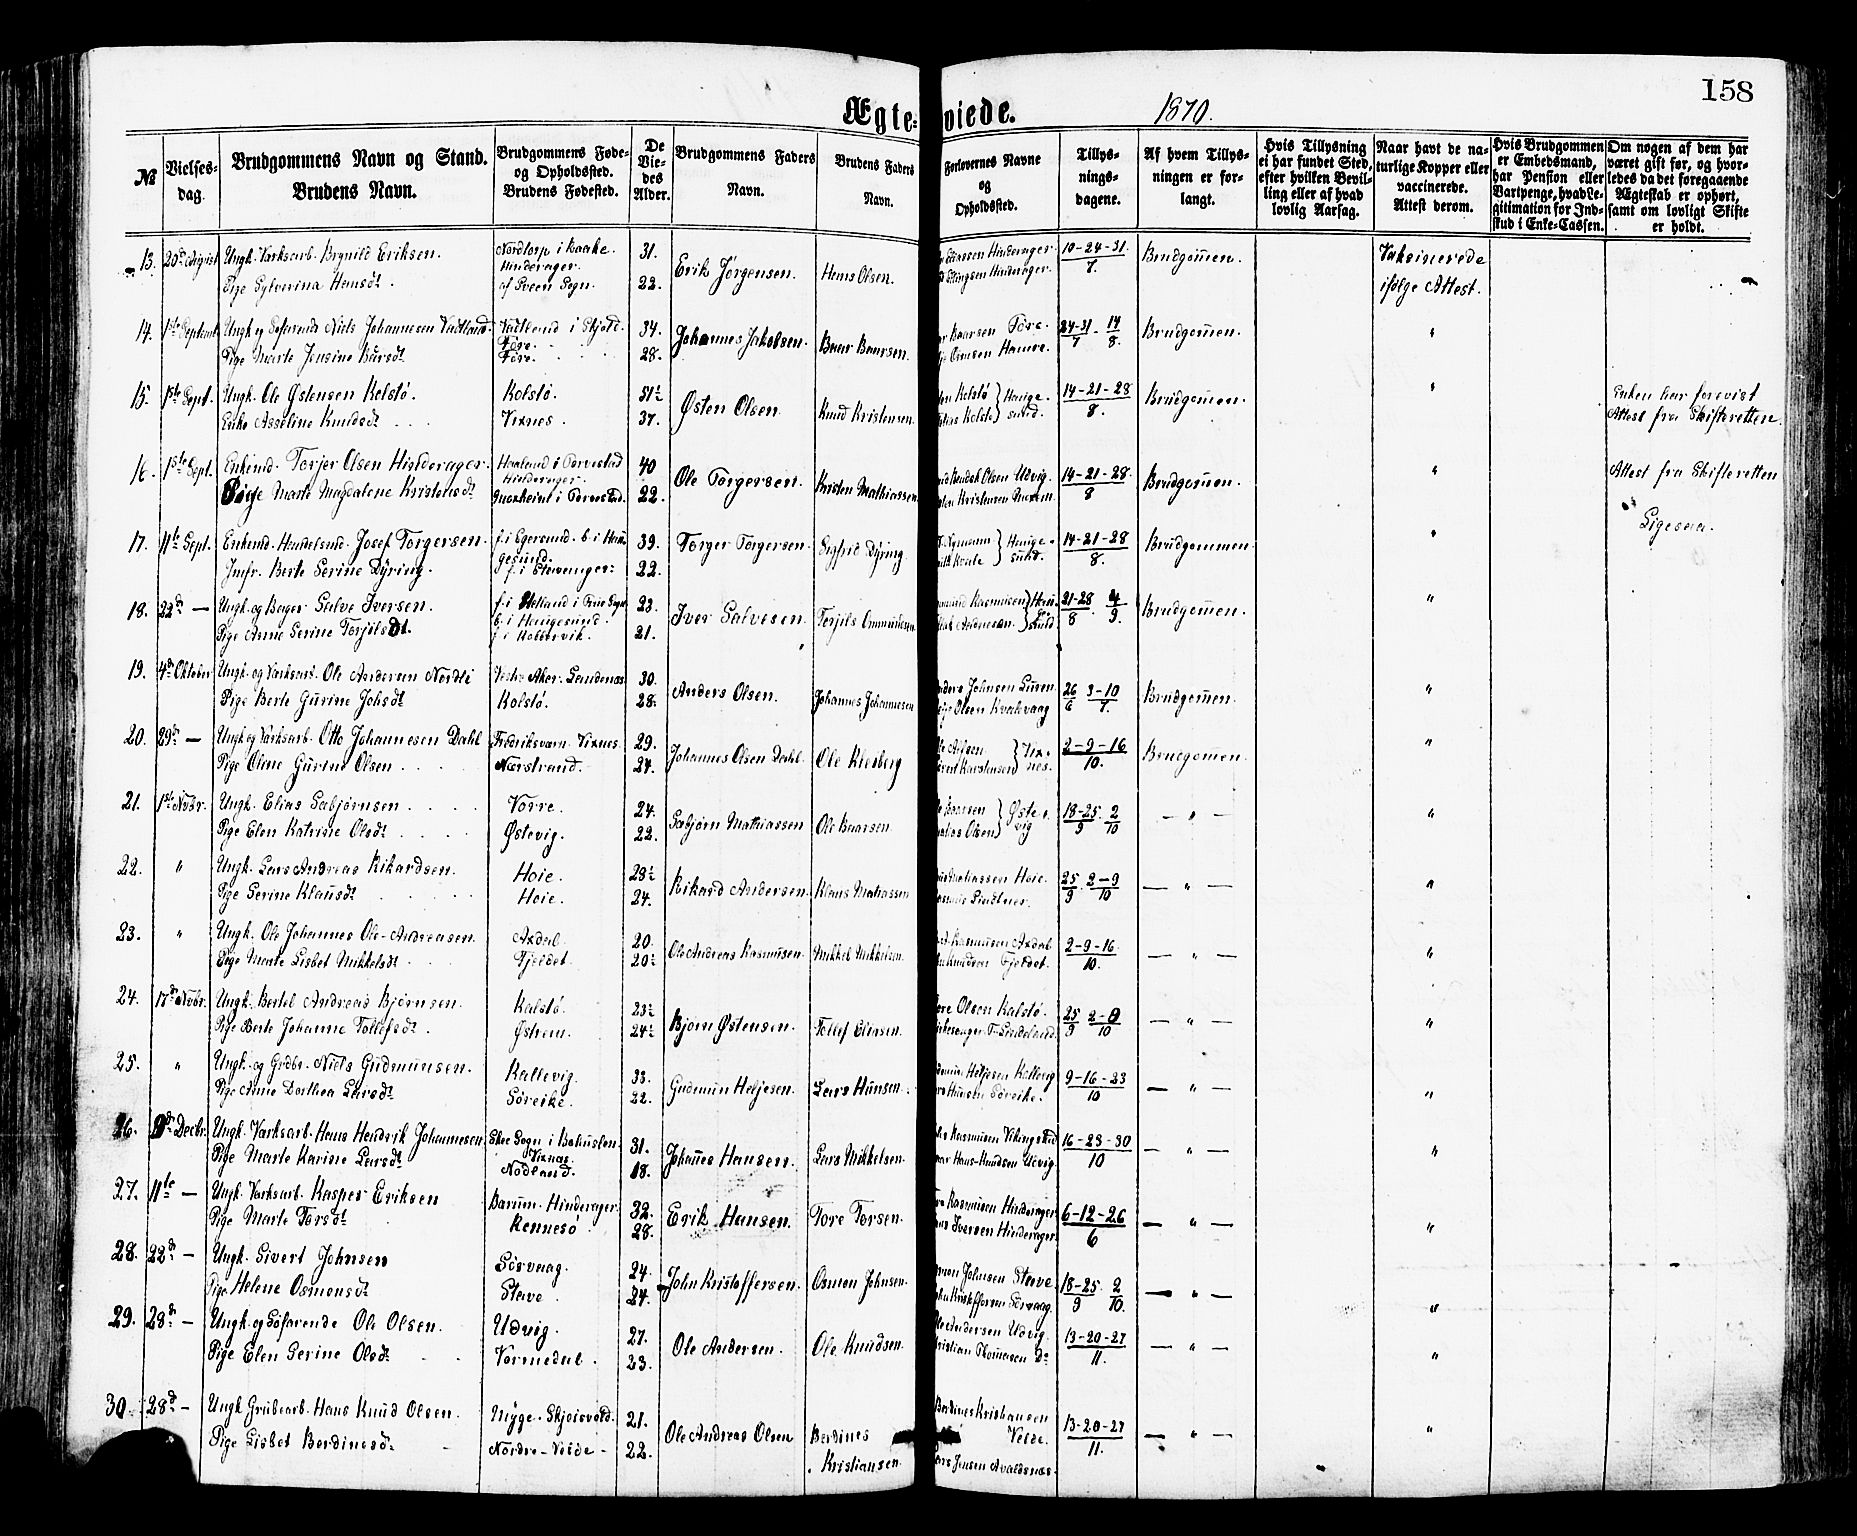 158
Ægte- viede. 1870.
№
Vielses-
dag.
Brudgommens Navn og Stand.
Brudens Navn.
Brudgommens Føde-
og Opholdssted.
Brudens Fødested.
De
Vie-
des
Alder.
Brudgommens Faders
Navn.
Brudens Faders
Navn.
Forlovernes Navne
og
Opholdssted.
Tillys-
nings-
dagene.
Af hvem Tillys-
ningen er for-
langt.
Hvis Tillysning
ei har fundet Sted,
efter hvilken Bevil-
ling eller af hvad
lovlig Aarsag.
Naar havt de na-
turlige Kopper eller
vaccinerede.
Attest derom.
Hvis Brudgommen
er Embedsmand,
har Pension eller
Vartpenge, hvad Le-
gitimation for Ind-
skud i Enke-Cassen.
Om nogen af dem har
været gift før, og hvor-
ledes da det foregaaende
Ægteskab er ophørt,
samt om lovligt Skifte
er holdt.
13. 20de August Ungk. Varksarb. Brynild Eriksen. Nordtorp i Baake. 31. Erik Jørgensen. Hans Olsen. Hinderager. 10-24-31/7. Brudgomen. Vaksinerede
Hinderager.
Pige Sylverina Hansdt. af Sveen Sogn. 22. Hinderager. ifølge Attest.
14. 1ste Septemb Ungk og Søfarende Niels Johannesen Vadtland. Vadtland i Skjold. 34. Johannes Jakobsen. Baar Baarsen. Baarsen Føre. 24-31/7 - 14/8. Brudgomen. "
Føre.
Pige Marte Jensine Bårsdt. Føre. 28. Osmsen Hamre.
15. 1ste Sept. Ungk. Ole Østensen Kolstø. Kolstø. 51½ Østen Olsen. Knud Kristensen. Kolstø } Hauge- 14-21-28/8. Brudgomen. " Enken har forevist
Enke Asseline Knudsdt. Vixnes. 37. Kolstø } sund. Attest fra Skifteretten.
16. 1ste Sept. Enkemd. Torjer Olsen Hinderager. Haaland i Torvestad 40 Ole Torgersen. Kristen Mathiassen Olsen Udvig. 14-21-28/8 Brudgomen. " Attest fra Skifteretten
Hinderager.
Pige Marte Magdalene Kristensdt. i Torvestad. 22. Kristensen
17. 11te Sept. Enkemd. Handelsmd. Josef Torgersen. f. i Egersund. b. i Hau 39. Torger Torgersen. Sigfrid Dyring. } Hauge- 14-21-28/8. Brudgommen. " Ligesaa.
gesund.
Jmfr. Berte Serine Dyring. f. i Stavanger. 22. Kvale } sund.
18. 22de — Ungk. og Bøger Salve Iversen. f. i Helland i 23. Iver Salvesen. Torjils Ommundsen Rasmusen } Hau- 21-28/8 4/9. Brudgomen. "
b. i Haugesund.
Pige Anne Serine Torjilsdt. f. i Kobbervik. 21. Andresen. } sund
19. 4de Oktober Ungk. og Varksarb. Ole Andersen Nordli Vestre Aker. Sandenæs 30. Anders Olsen. Johannes Johannesen Johnsen 26/6 3-10/7. Brudgomen. "
Pige Berte Gurine Johsdt Kolstø. 28. Olsen Kvalevaag
20. 29de — Ungk og Varksarb. Otto Johannesen Dahl Fredriksværn. Vixnes 29. Johannes Olsen Dahl. Ole Kleberg } Vix- 2-9-16/10. Brudgomen. "
Pige Oline Gurine Olsen. Nærstrand. 24. Karstensen } nes.
21. 1ste Novbr. Ungk. Elias Sabjørnsen. Vorre. 24. Sabjørn Mathiassen Ole Baarsen. } Øste- 18-25/9 2/10 — " — "
Pige Elen Katrine Olsdt. Østevig. 22. Olsen } vig
22. " Ungk. Lars Andreas Rikardsen. Hoie. 28½ Rikard Andersen. Klaus Matiassen Mathiassen Hoie. 25/9. 2-9/10 — " — "
Pige Serine Klausdt. Hoie. 24.
23. " Ungk. Ole Johannes Ole-Andreasen. Axdal. 20. Ole Andreas Rasmusen. Mikkel Mikkelsen. Rasmussen Axdal. 2-9-16/10. — " — "
Pige Marte Lisbet Mikkelsdt. Fjeldet. 20½ Knudsen Fjeldet.
24. 17de Novbr. Ungk. Bertel Andreas Bjørnsen. Kalstø. 23½ Bjørn Østensen. Tollef Eliasen. Tore Olsen Kalstø. 25/9 2-9/10 — " — "
Pige Berte Johanne Tollefsdt. Østrem. 24½ Kirkesanger T. Lindeland.
25. " Ungk. og Grdbr. Niels Gudmunsen. Kallevig. 33. Gudmun Heljesen. Lars Hansen. Heljesen Kallevig 9-16-23/10 — " — "
Pige Anne Dorthea Larsdt. Søreike. 22. Hansen Søreike.
26. Decbr. Ungk. Varksarb. Hans Hendrik Johannesen. Sogn i Bohuslen. 31. Johanes Hansen. Lars Mikkelsen. Rasmusen Vikingstad 16-23-30/10 — " — "
Vixnes.
Pige Marte Karine Larsdt. Nodland. 18. Hans-Knudsen Udvig.
27. 11te — Ungk. Varksarb. Kasper Eriksen Barum. Hinderager. 32. Erik Hansen. Tore Torsen. Rasmusen Hinderager 6-12-26/6 — " — "
Pige Marte Torsdt. Rennesø. 28. Iversen Hinderager.
28. 22de — Ungk. Sivert Johnsen Sørvaag. 24. John Kristoffersen. Osmon Johnsen. Johnsen Stave. 18-25/9 2/10. — " — "
Pige Helene Osmonsdt. Stave. 24. Kristoffersen Sørvaag.
29. 28de — Ungk. og Søfarende Ole Olsen. Udvig. 27. Ole Andersen. Ole Knudsen. Andersen Udvig. 13-20-27/11. — " — "
Pige Elen Serine Olsdt. Vormedal. 23. Kristian Thomasen Do
30. 28de — Ungk. Grubearb. Hans Knud Olsen. Myge. Skjoisvold. 21. Ole Andreas Olsen Berdines Berdines Kristiansen 13-20-27/11. — " — "
Velde.
Pige Lisbet Berdinesdt. Nordre-Velde. 22. Kristiansen Jensen Avaldsnæs.